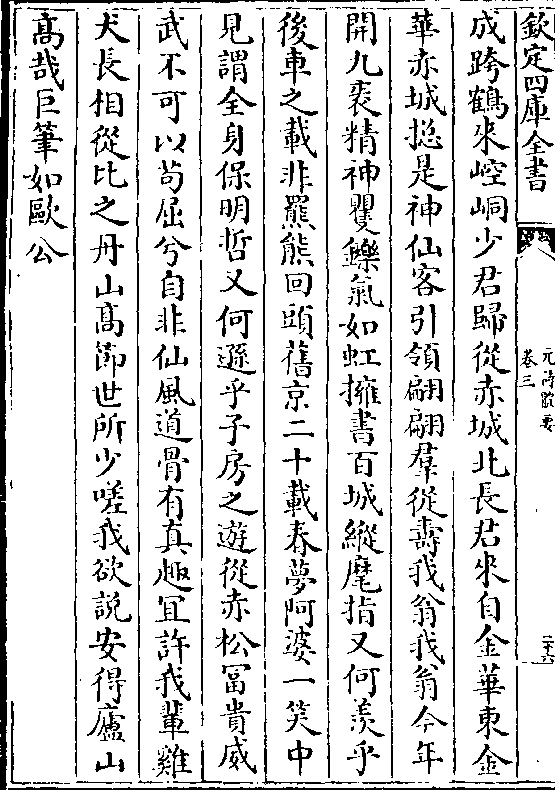 欽定四庫全書
元詩體要
卷三
二十六
成跨鶴來崆峒少君歸從赤城北長君來自金華東金
華赤城揔是神仙客引領翩翩羣從壽我翁我翁今年
開九袠精神矍鑠氣如虹擁書百城縱麾指又何羡乎
後車之載非羆熊回頭舊京二十載春夢阿婆一笑中
見謂全身保明哲又何遜乎子房之遊從赤松富貴威
武不可以苟屈兮自非仙風道骨有真趣冝許我輩雞
犬長相從比之丹山髙節世所少嗟我欲說安得廬山
髙哉巨筆如歐公